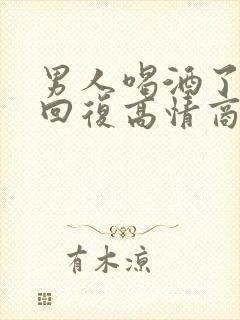 男人喝酒了
回復高情商
有木凉